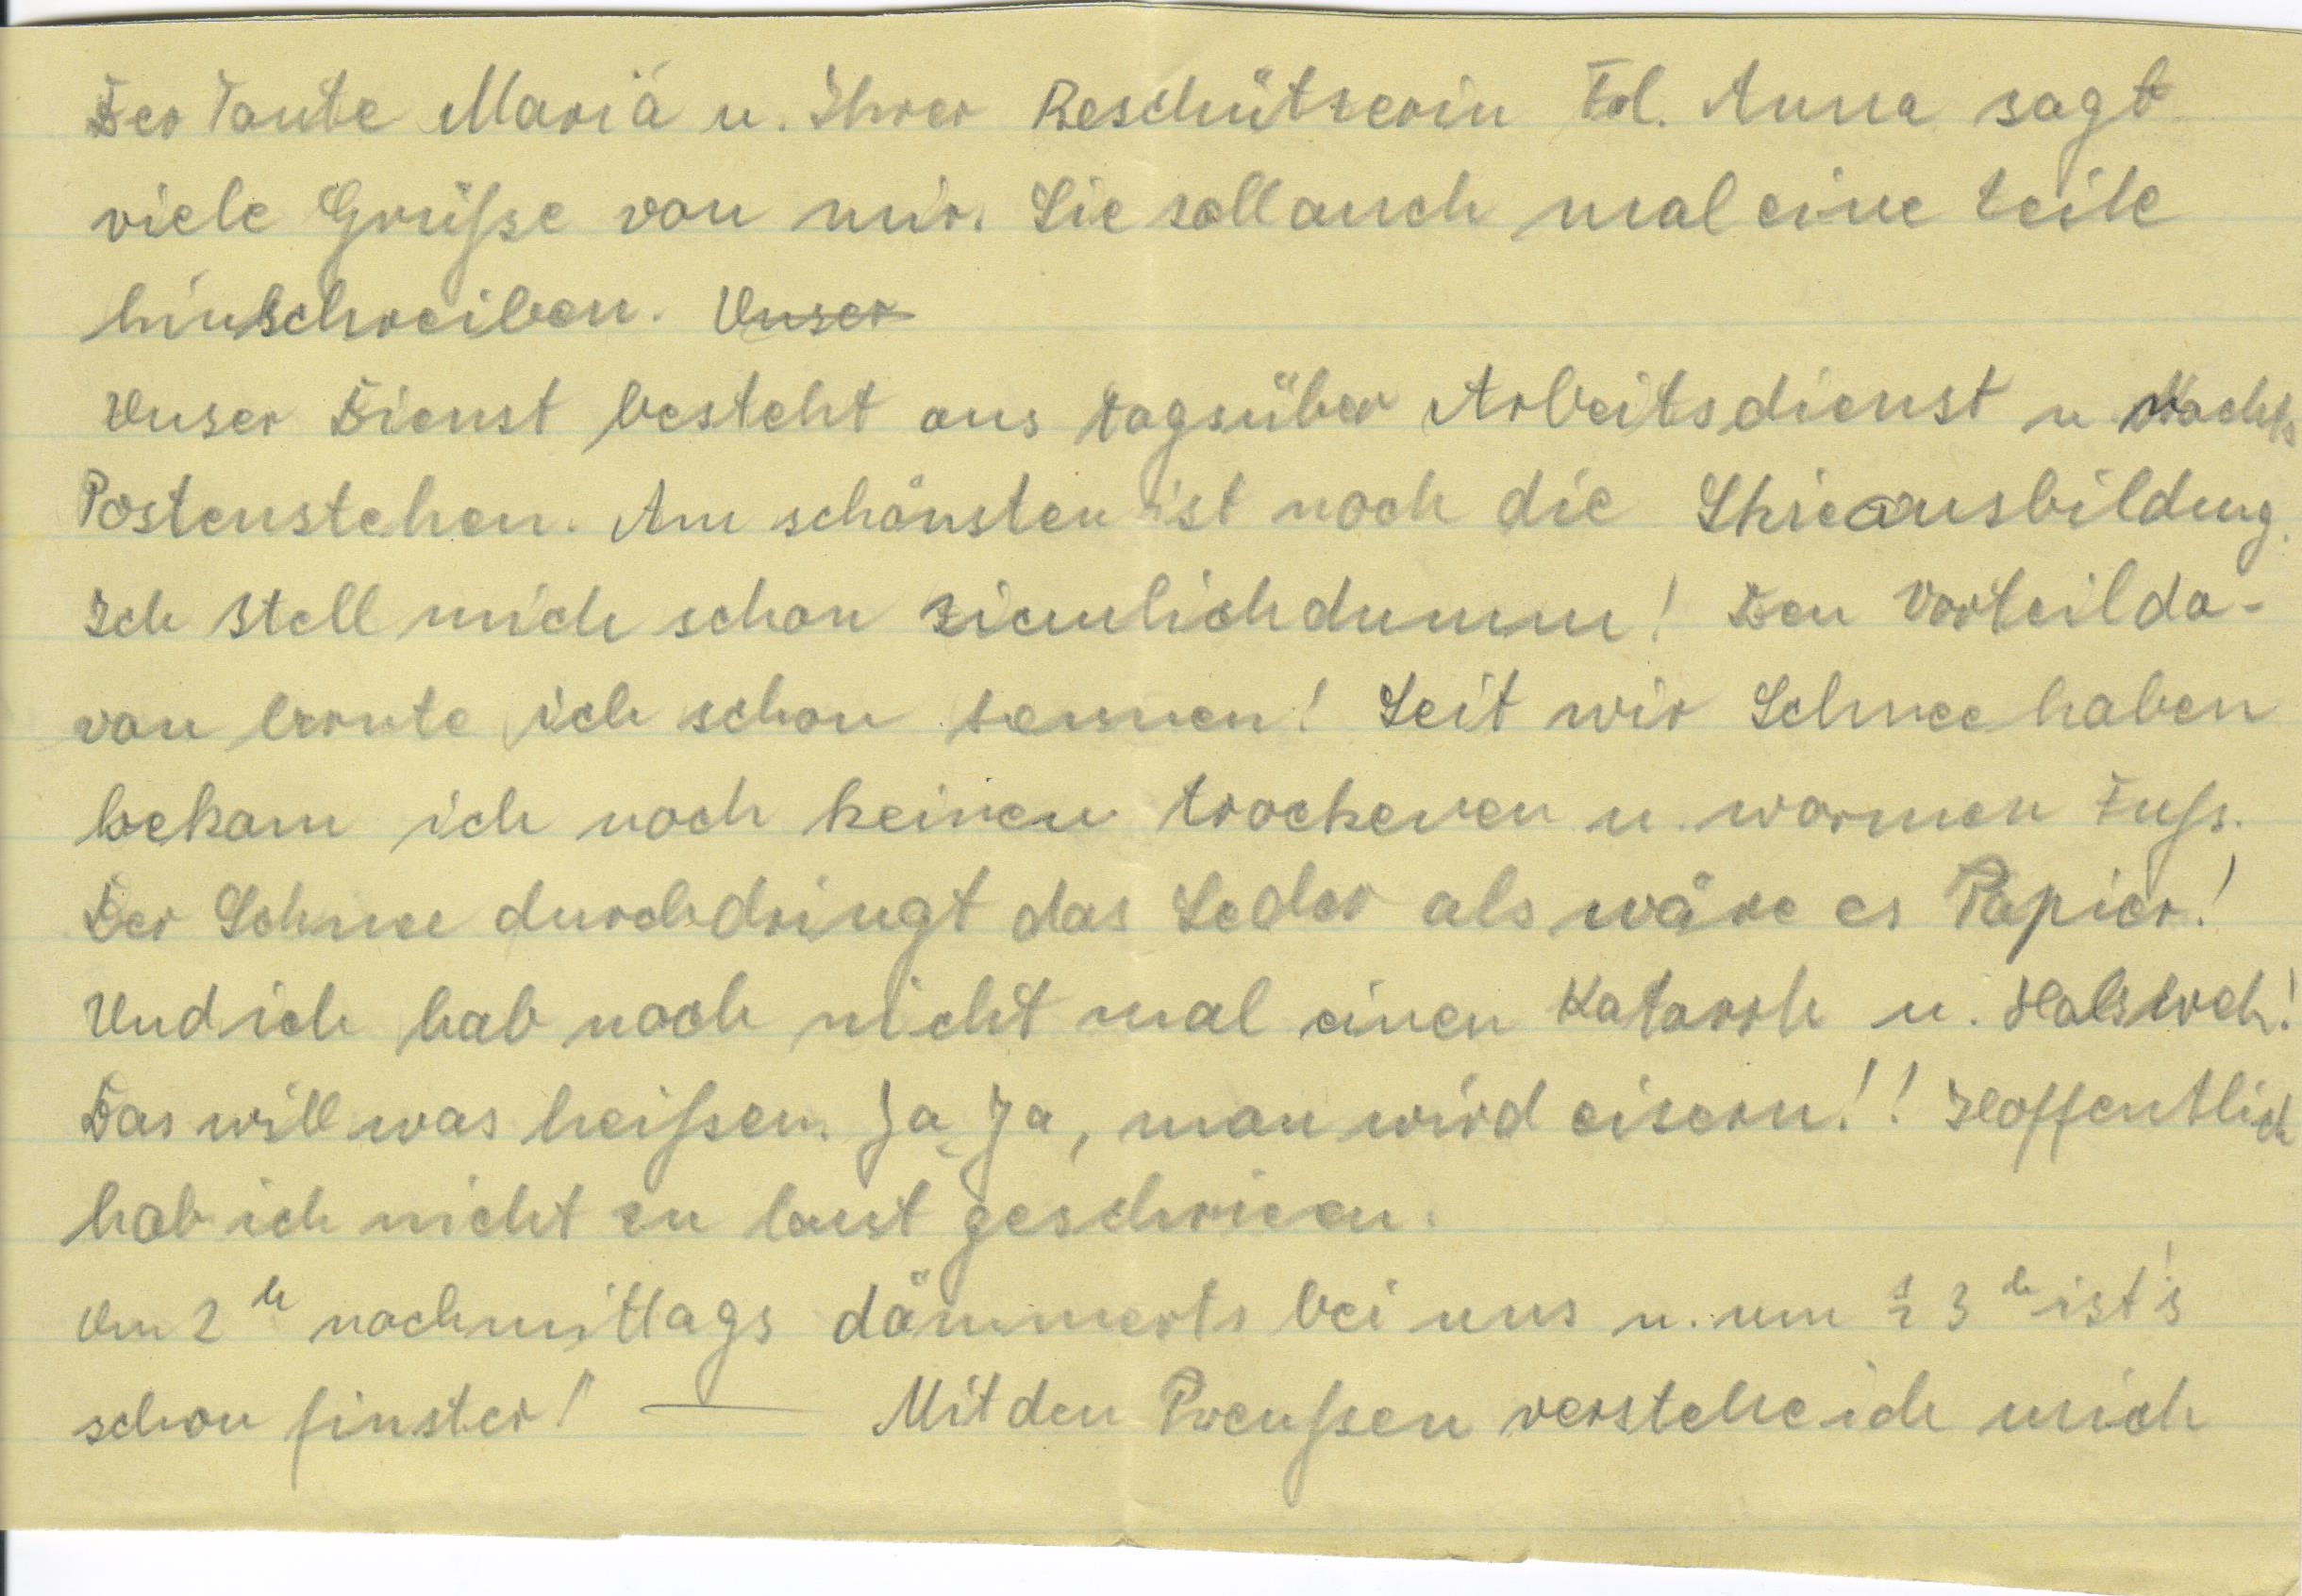 Der Tante Mariä u. Ihrer Beschützerin Frl. Anna sagt
viele Grüsse von mir. Sie soll auch mal eine Zeile
hinschreiben. Unser
Unser Dienst besteht aus tagsüber Arbeitsdienst u. Nachts
Postenstehen. Am schönsten ist noch die Shieausbildung.
Ich stell mich schon ziemlich dumm! Den Vorteil da-
von lernte ich schon kennen! Seit wir Schnee haben
bekam ich noch keinen trockenen u. warmen Fuss.
Der Schnee durchdringt das Leder als wäre es Papier!
Und ich hab noch nicht mal einen Katarrh u. Halsweh!
Das will was heissen. Ja, Ja, man wird eisern!! Hoffentlich
hab ich nicht zu laut geschrieen.
Um 2 h nachmittags dämmerts bei uns u. um ½ 3 h ist's
schon finster! — Mit den Preussen verstehe ich mich